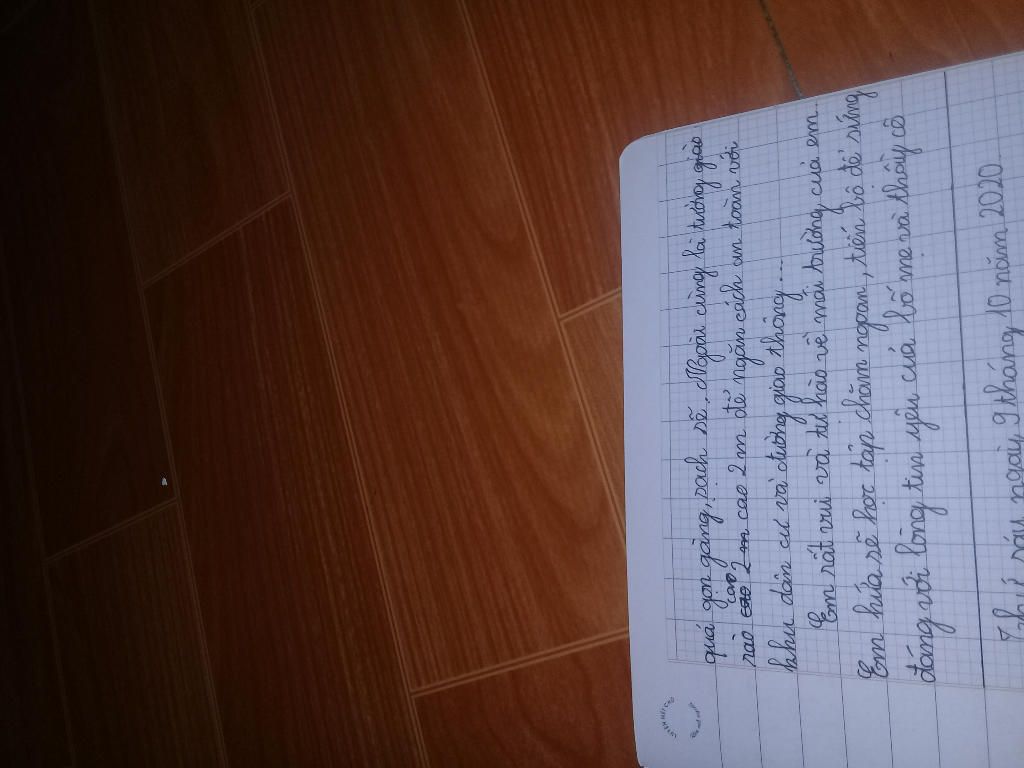 quá gọn gàng, sạch sẽ. Ngoài cùng là tường giào
rào cao 2 m cao 2 m để ngăn cách an toàn với
khu dân cư và đường giao thông ...
Em rất vui và tự hào về mái trường của em.
Em hứa sẽ học tập chăm ngoan, tiến bộ để sứng
đáng với lòng tin yêu của bố mẹ và thầy cô
Thứ sáu ngày 9 tháng 10 năm 2020